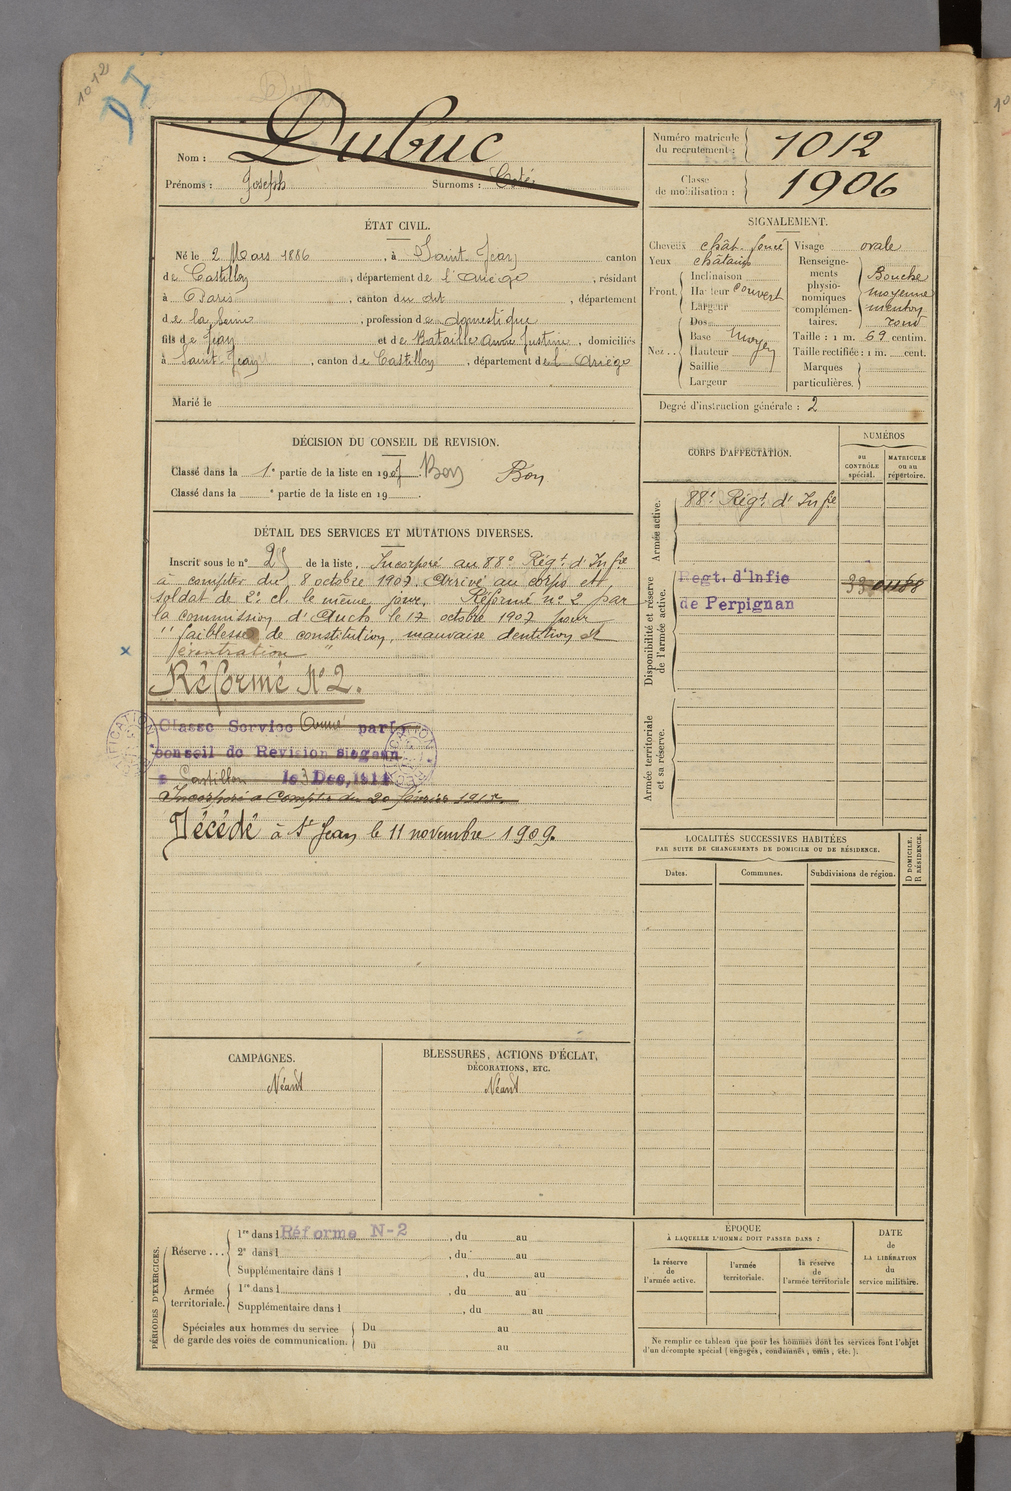 1012
Nom : Dubuc
Prénoms : Joseph Surnoms :
Numéro matricule du recrutement : 1012
Classe de mobilisation : 1906
ÉTAT CIVIL.
Né le 2 Mars 1886, à Saint Jean canton
de Castillon, département de l'Ariège, résidant
à Paris, canton du dit, département
de la Seine, profession de domestique
fils de Jean et de Bataille Anne Justine, domiciliés
à Saint Jean, canton de Castillon, département de l'Ariège
Marié le
SIGNALEMENT.
Cheveux chât. foncé
Yeux châtains
Front. Inclinaison
Hauteur couvert
Largeur
Nez.. Dos
Base moyen
Hauteur
Saillie
Largeur
Visage ovale
Renseignements physionomiques complémentaires. Bouche moyenne menton rond
Taille : 1 m. 69 centim.
Taille rectifiée : 1 m. cent.
Marques particulières.
Degré d'instruction générale : 2
DÉCISION DU CONSEIL DE REVISION.
Classé dans la 1e partie de la liste en 1907 Bon Bon
Classé dans la e partie de la liste en 19 .
CORPS D'AFFECTATION.
NUMÉROS
au CONTRÔLE spécial.
MATRICULE ou au répertoire.
Armée active.
88e Régt d'Infie
Disponibilité et réserve de l'armée active.
Regt. d'Infie
de Perpignan
Armée territoriale et sa réserve.
DÉTAIL DES SERVICES ET MUTATIONS DIVERSES.
Inscrit sous le n° 25 de la liste. Incorporé au 88e Régt d'Infie
à compter du 8 octobre 1907. Arrivé au corps et
soldat de 2e cl. le même jour. Réformé n° 2 par
la commission d'Auch le 17 octobre 1907 pour
"faiblesse de constitution, mauvaise dentition et
éventration"
Réformé N°2.
Classe Service Armé par le
Conseil de Revision siegean
a Castillon le 3 Dec, 1914
Incorporé à compter du 20 février 1915
Décédé à St Jean le 11 novembre 1909.
LOCALITÉS SUCCESSIVES HABITÉES
PAR SUITE DE CHANGEMENTS DE DOMICILE OU DE RÉSIDENCE.
Dates. Communes. Subdivisions de région. D DOMICILE. R RÉSIDENCE.
CAMPAGNES.
Néant
BLESSURES, ACTIONS D'ÉCLAT,
DÉCORATIONS, ETC.
Néant
PÉRIODES D'EXERCICES.
Réserve ... 1re dans l Réforme N-2, du au
2e dans l , du au
Supplémentaire dans l , du au
Armée territoriale. 1re dans l , du au
Supplémentaire dans l , du au
Spéciales aux hommes du service de garde des voies de communication. Du au
Du au
ÉPOQUE
À LAQUELLE L'HOMME DOIT PASSER DANS :
la réserve de l'armée active.
l'armée territoriale.
la réserve de l'armée territoriale
DATE de LA LIBÉRATION du service militaire.
Ne remplir ce tableau que pour les hommes dont les services font l'objet
d'un décompte spécial (engagés, condamnés, omis, etc.).